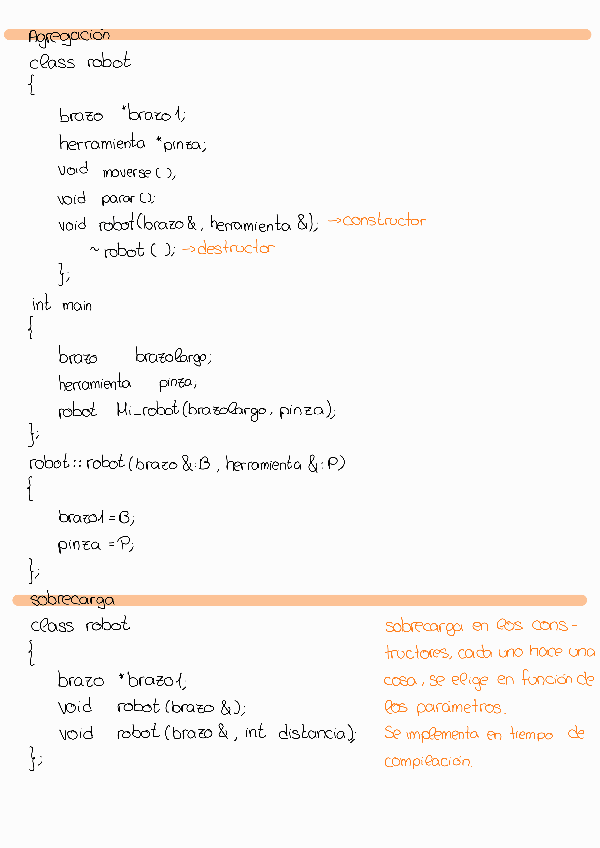 Agregación
class robot
{
brazo *brazo1;
herramienta *pinza;
void moverse();
void parar();
void robot(brazo&, herramienta &); →constructor
~robot(); →destructor
};
int main
{
brazo brazolargo;
herramienta pinza;
robot Mi_robot(brazolargo, pinza);
};
robot::robot(brazo &:B, herramienta &:P)
{
brazo1 = B;
pinza = P;
};
sobrecarga
class robot
{
brazo *brazo1;
void robot(brazo &);
void robot(brazo &, int distancia);
};
sobrecarga en los cons-
tructores, cada uno hace una
cosa, se elige en función de
los parámetros.
Se implementa en tiempo de
compilación.